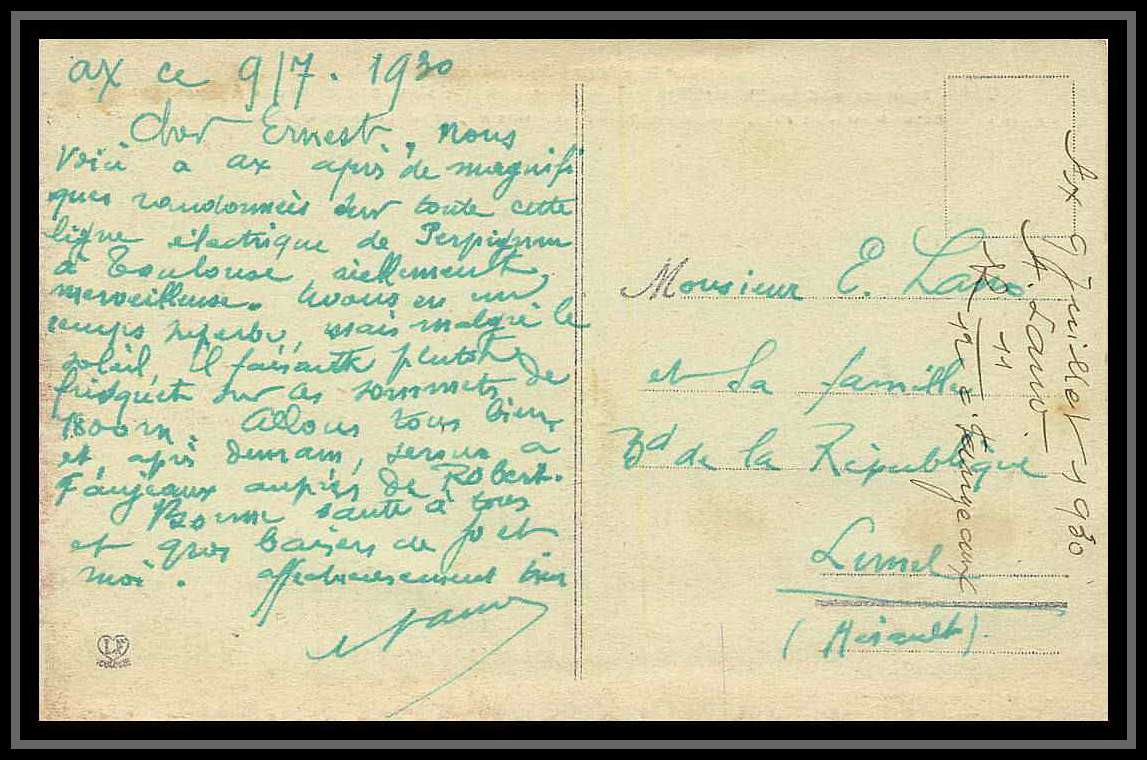 ax ce 9/7. 1930
Cher Ernest, nous
voici a ax après de magnifi
ques randonnées sur toute cette
ligne électrique de Perpignan
à Toulouse réellement
merveilleuse. Avons eu un
temps superbe, mais malgré le
soleil, il faisait plutôt
frisquet sur les sommets de
1800 m. Allons tous bien,
et après demain, serons a
Fanjeaux auprès de Robert.
Bonne santé à tous
et gros baisers de Jo et
moi. affectueusement tien
LF
Monsieur E. Lano
et sa famille
Bd de la République
Lunel
(Hérault).
Ax 9 Juillet 1930
A. Lano
11
12 à Fanjeaux